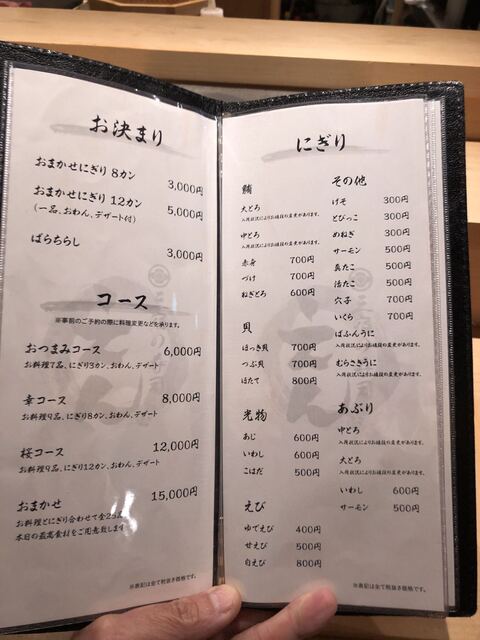 お決まり
おまかせにぎり 8カン
3,000円
おまかせにぎり 12カン
(一品、おわん、デザート付)
5,000円
ばらちらし
3,000円
コース
※事前のご予約の際に料理変更などを承ります。
おつまみコース
6,000円
お料理7品、にぎり3カン、おわん、デザート
幸コース
8,000円
お料理9品、にぎり8カン、おわん、デザート
桜コース
12,000円
お料理9品、にぎり12カン、おわん、デザート
おまかせ
15,000円
お料理とにぎり合わせて全25品
本日の最高食材をご用意致します
※表記は全て税抜き価格です。
にぎり
鮪
大とろ
入荷状況によりお値段の変更があります。
中とろ
入荷状況によりお値段の変更があります。
赤身 700円
づけ 700円
ねぎとろ 600円
貝
ほっき貝 700円
つぶ貝 700円
ほたて 800円
光物
あじ 600円
いわし 600円
こはだ 500円
えび
ゆでえび 400円
甘えび 500円
白えび 800円
その他
げそ 300円
とびっこ 300円
めねぎ 300円
サーモン 500円
真たこ 500円
活たこ 500円
穴子 700円
いくら 700円
ばふんうに
入荷状況によりお値段の変更があります。
むらさきうに
入荷状況によりお値段の変更があります。
あぶり
中とろ
入荷状況によりお値段の変更があります。
大とろ
入荷状況によりお値段の変更があります。
いわし 600円
サーモン 500円
※表記は全て税抜き価格です。